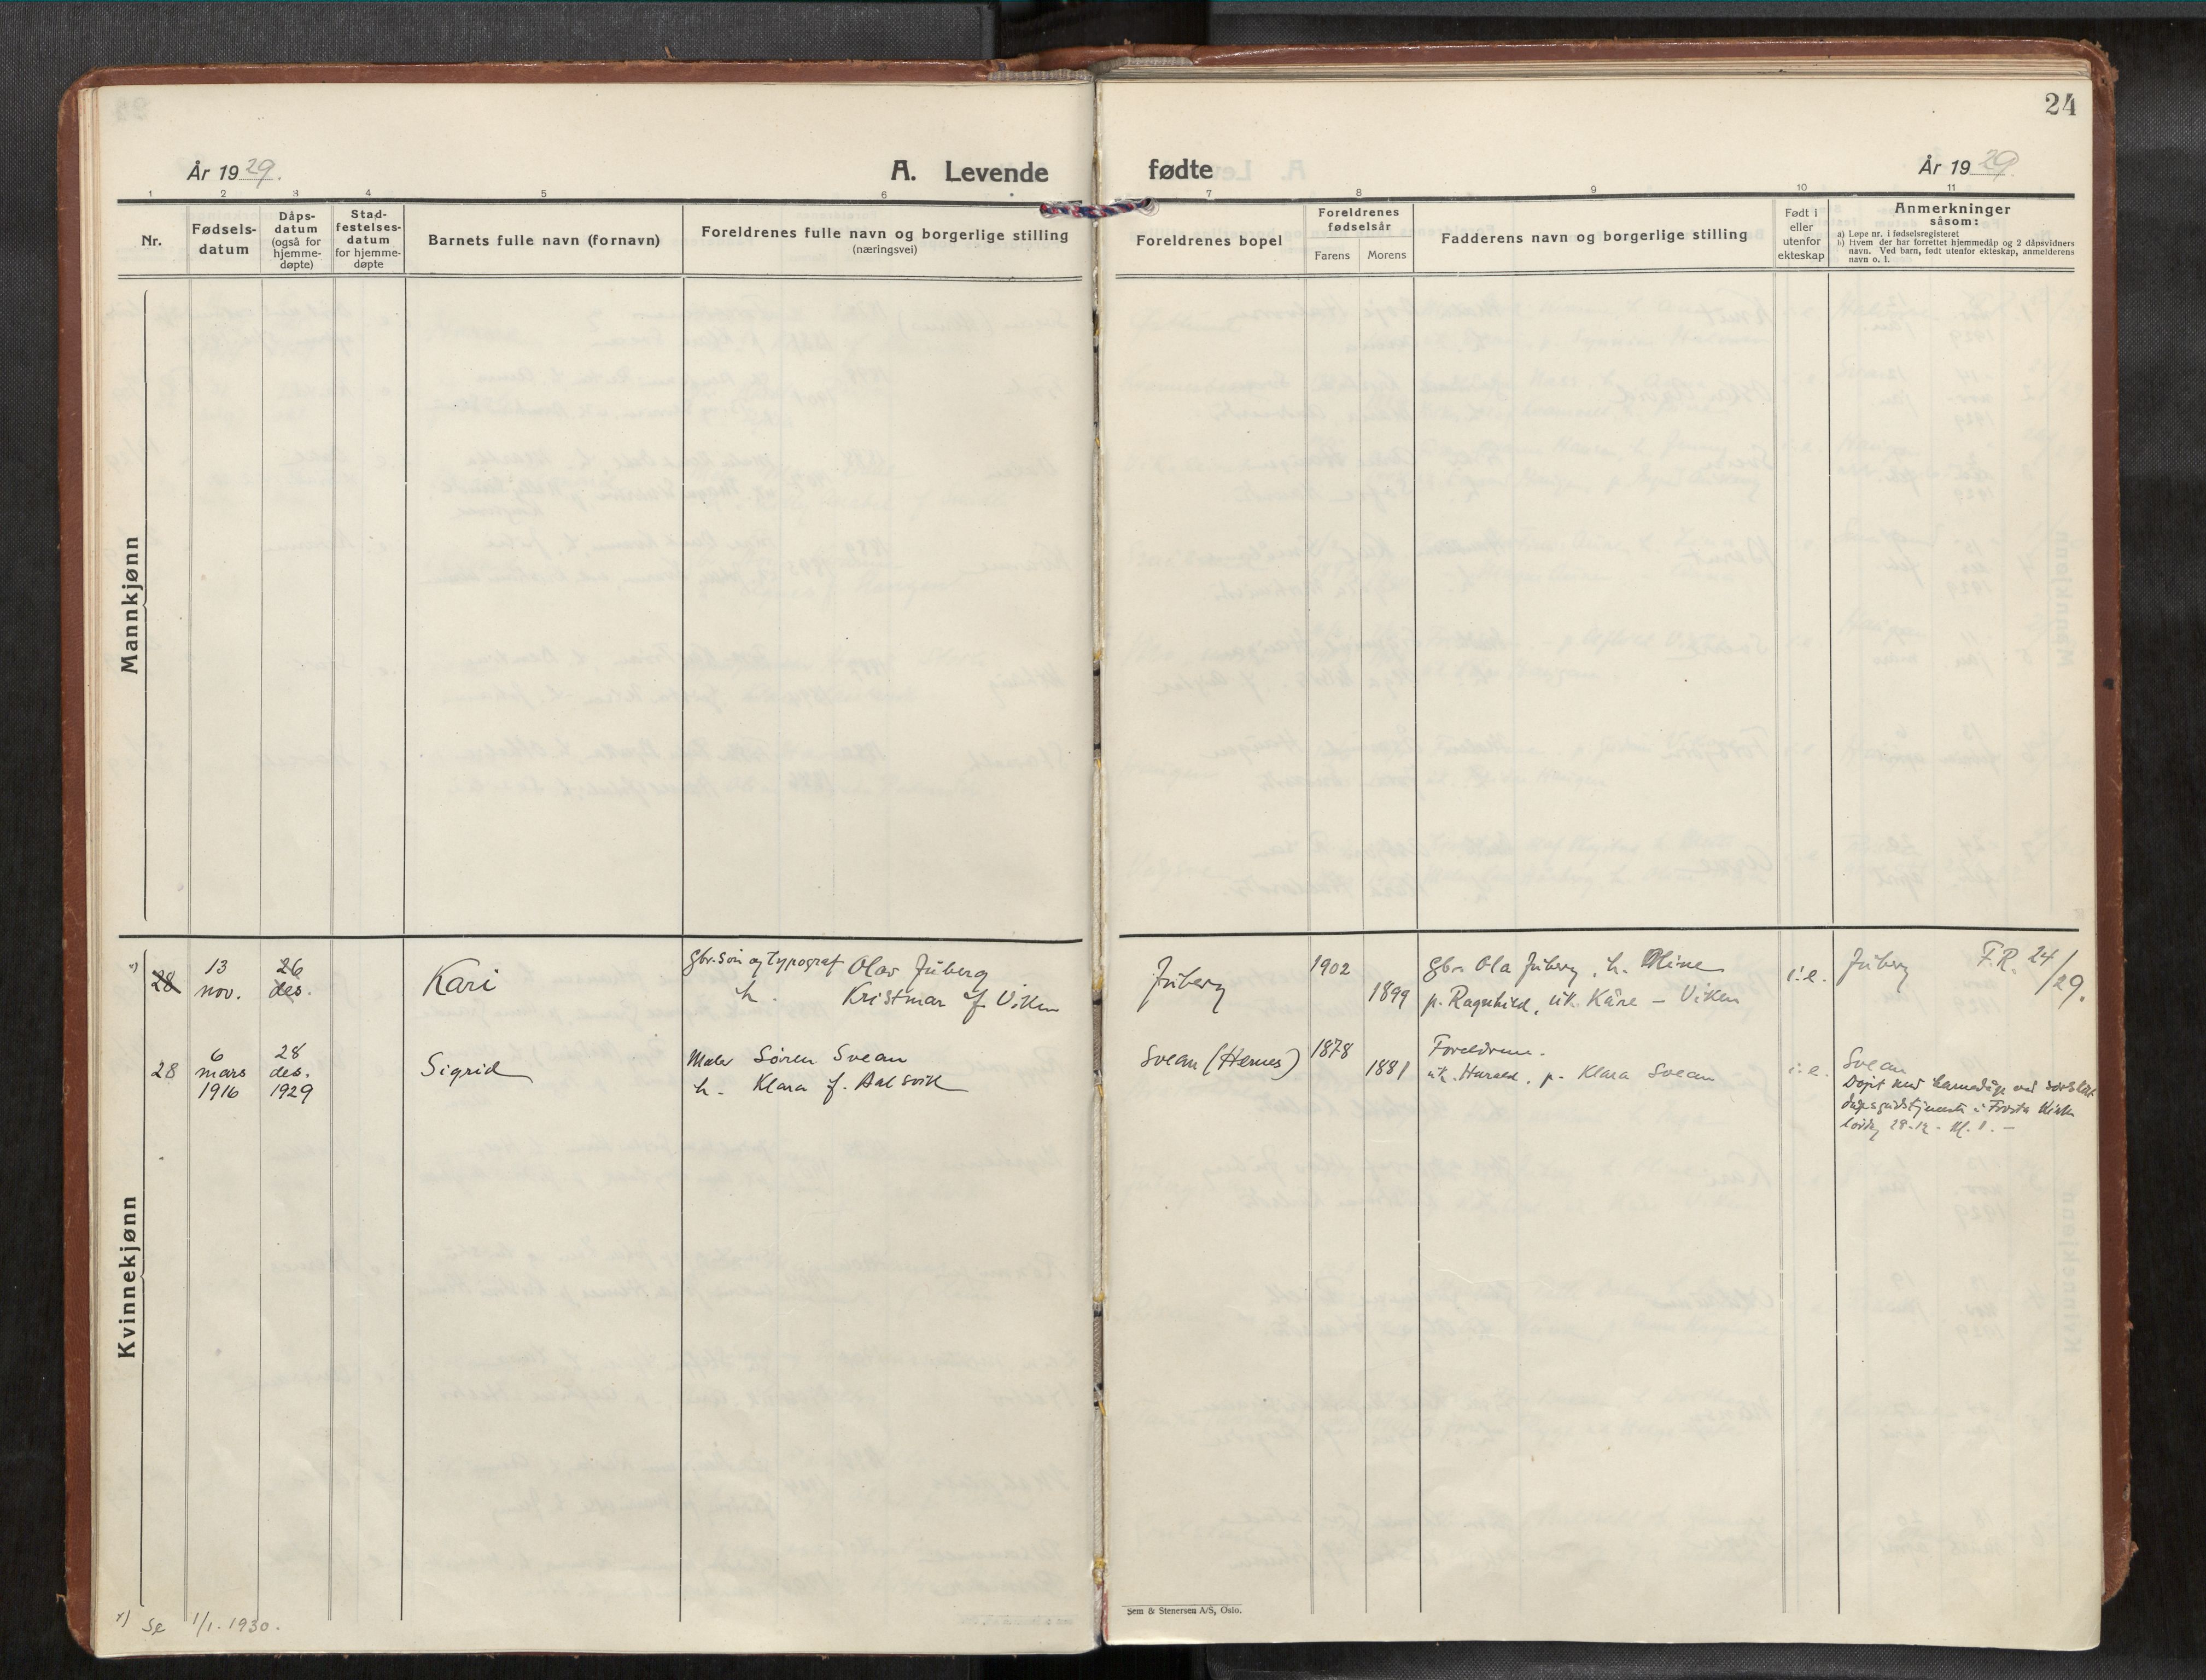 24
År 1929.
A. Levende
fødte
År 1929
1 2 3 4 5 6 7 8 9 10 11
Nr.
Fødsels-
datum
Dåps-
datum
(også for
hjemme-
døpte)
Stad-
festelses-
datum
for hjemme-
døpte
Barnets fulle navn (fornavn)
Foreldrenes fulle navn og borgerlige stilling
(næringsvei)
Foreldrenes bopel
Foreldrenes
fødselsår
Farens Morens
Fadderens navn og borgerlige stilling
Født i
eller
utenfor
ekteskap
Anmerkninger
såsom:
a) Løpe nr. i fødselsregisteret
b) Hvem der har forrettet hjemmedåp og 2 dåpsvidners
navn. Ved barn, født utenfor ekteskap, anmelderens
navn o. l.
Mannkjønn
Kvinnekjønn
x)
28
13
nov.
26
des.
Kari
Gbr. søn og typograf Olav Juberg
h. Kristmar f. Viken
Juberg
1902
1899
Gbr. Ola Juberg, h. Oline
p. Ragnhild, uk. Kåre - Viken
i.e.
Juberg
F.R. 24/29.
28
6
mars
1916
28
des.
1929
Sigrid
Maler Søren Svean
h. Klara f. Aalsvik
Svean (Hernes)
1878
1881
Foreldrene.
uk. Harald, p. Klara Svean
i.e.
Svean
Døpt med barnedåp ved
dåpsgudstjeneste i Frosta Kirke
lørdag 28-12- kl. 1. -
x) Se 1/1. 1930.
Sem & Stenersen A/S, Oslo.